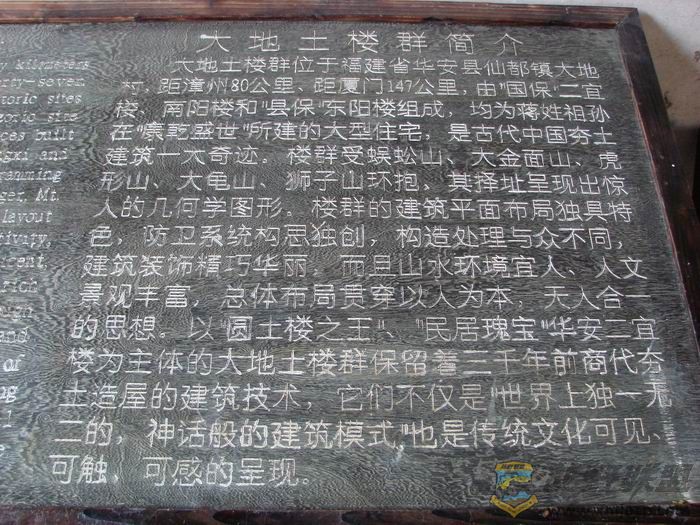 大地土楼群简介
大地土楼群位于福建省华安县仙都镇大地
村，距漳州80公里、距厦门147公里，由"国保"二宜
楼、南阳楼和"县保"东阳楼组成，均为蒋姓祖孙
在"康乾盛世"所建的大型住宅，是古代中国夯土
建筑一大奇迹。楼群受蜈蚣山、大金面山、虎
形山、大龟山、狮子山环抱，其择址呈现出惊
人的几何学图形。楼群的建筑平面布局独具特
色，防卫系统构思独创，构造处理与众不同，
建筑装饰精巧华丽，而且山水环境宜人、人文
景观丰富，总体布局贯穿以人为本，天人合一
的思想。以"圆土楼之王"、"民居瑰宝"华安二宜
楼为主体的大地土楼群保留着二千年前商代夯
土造屋的建筑技术，它们不仅是"世界上独一无
二的，神话般的建筑模式"也是传统文化可见、
可触，可感的呈现。
y kilometers
rty-seven
toric sites
oric site
ces built
ngxi and
ramming
ger, Mt.
layout
tivity,
cent,
rich
and
of